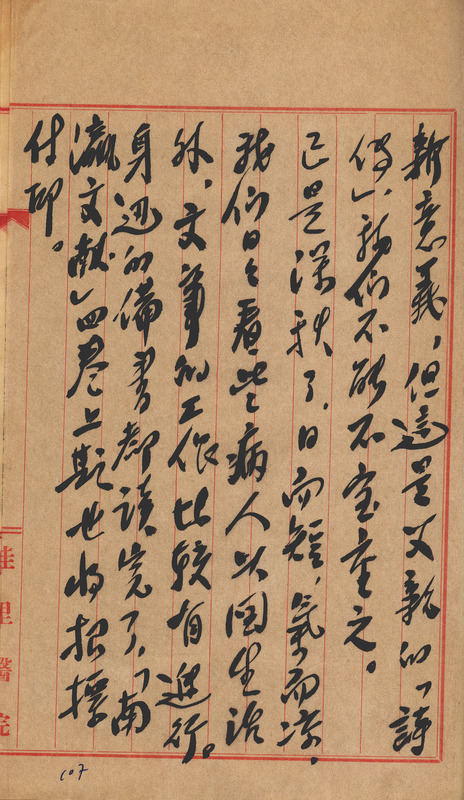 新意義,但這是父親的「詩
傳」,我們不能不寶重之。
已是深秋了,日而短,氣而凉,
我們日日看些病人以圖生活
外,文筆的工作比較有進行。
身邊的備書都讀完了,「南
瀛文獻」四卷上期也將招標
付印。
佳里醫院
107